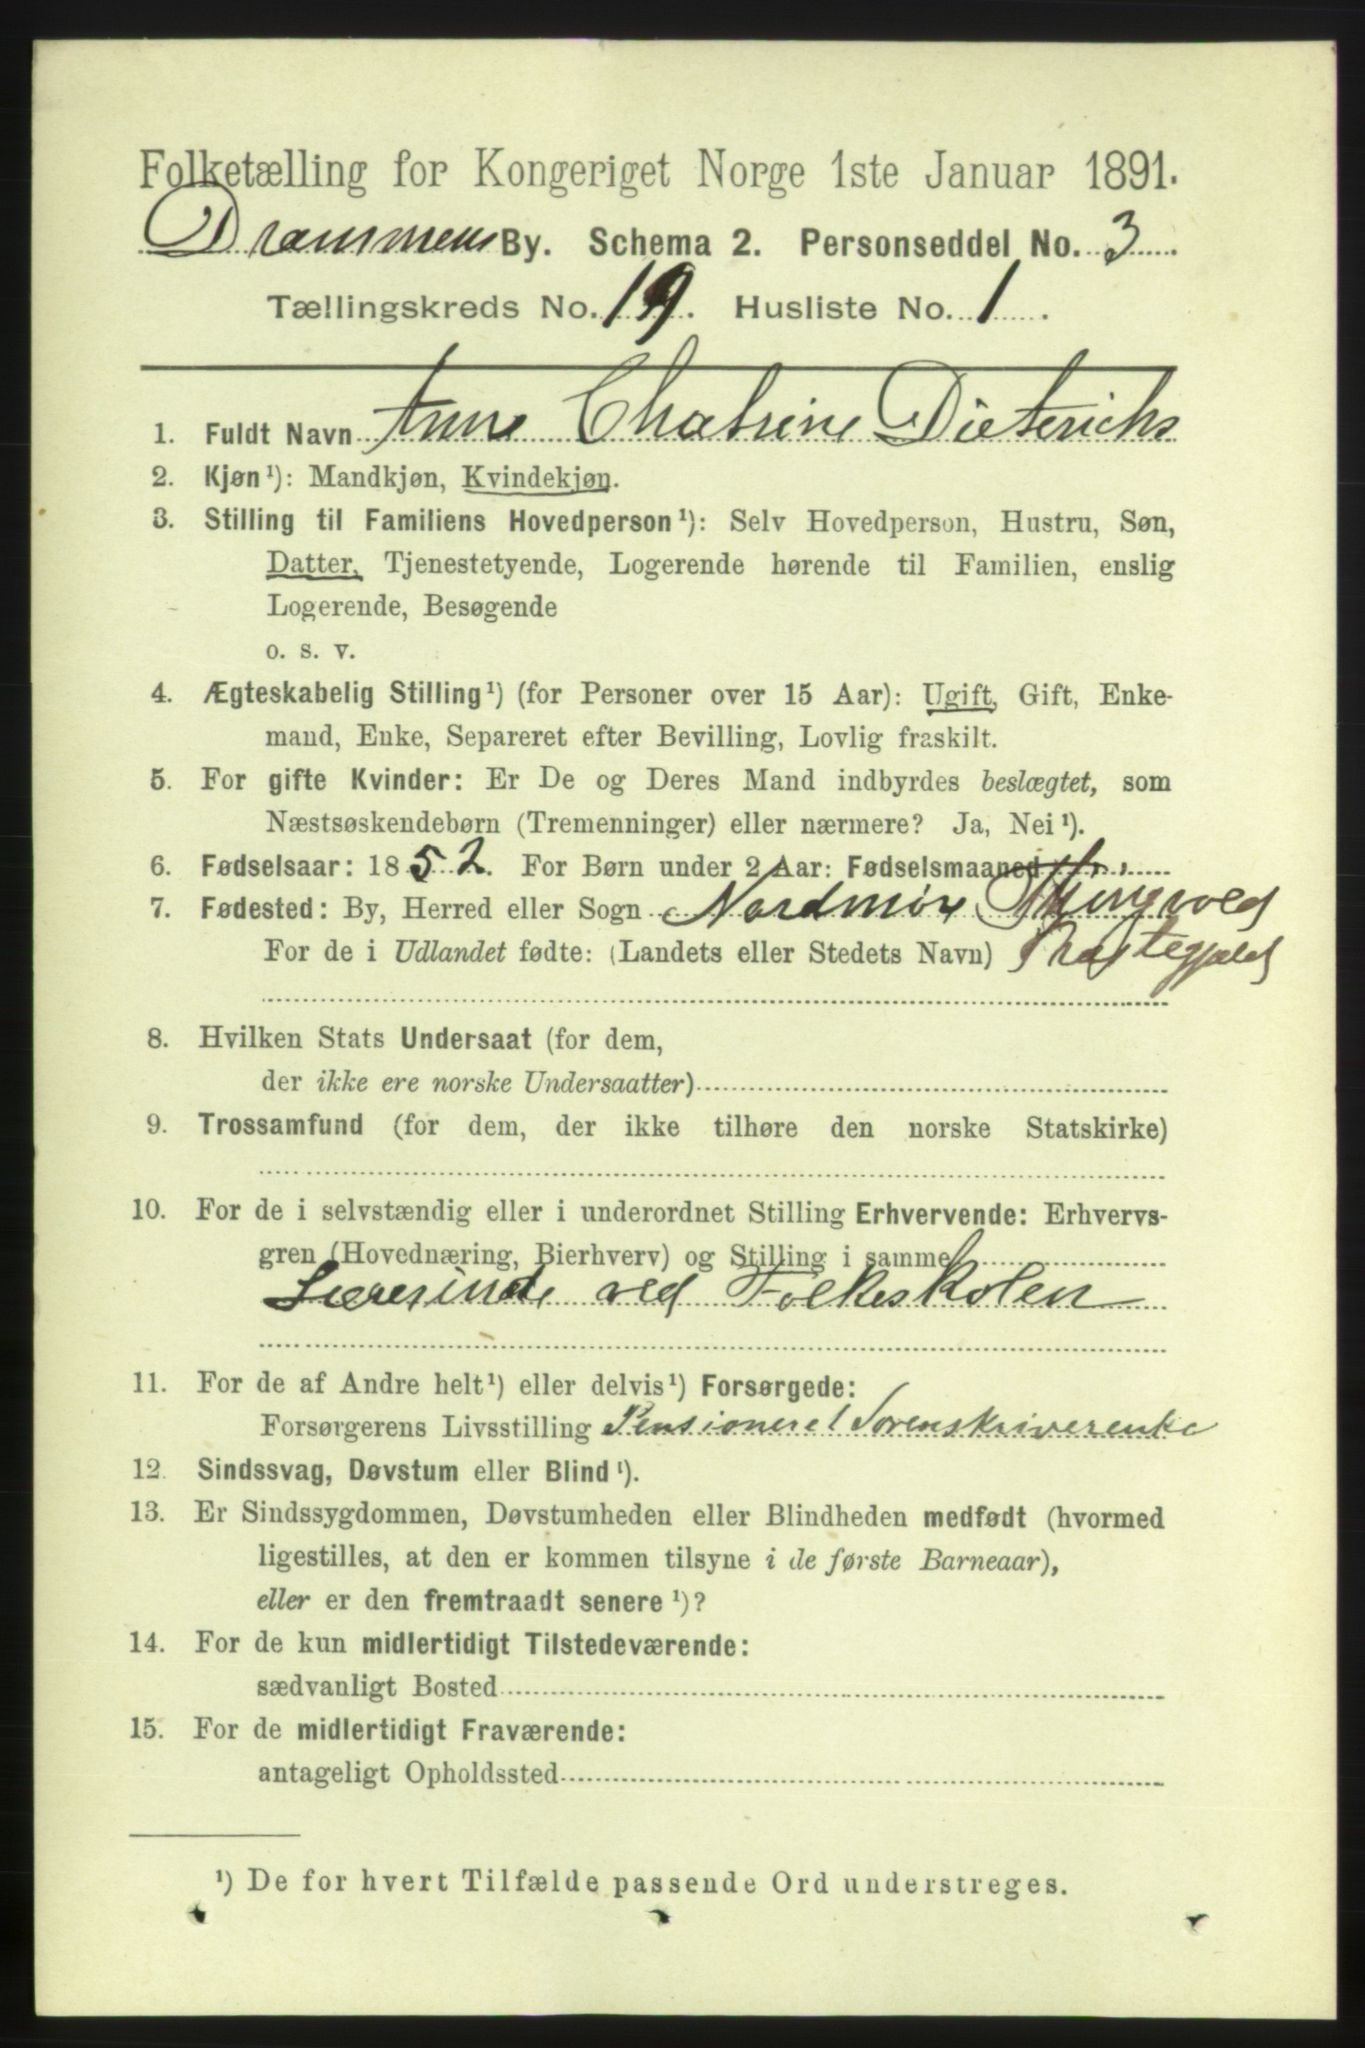 Folketælling for Kongeriget Norge 1ste Januar 1891.
Drammens By. Schema 2. Personseddel No. 3.
Tællingskreds No. 19. Husliste No. 1.
1. Fuldt Navn Anne Chatrine Dieterichs
2. Kjøn¹): Mandkjøn, Kvindekjøn.
3. Stilling til Familiens Hovedperson¹): Selv Hovedperson, Hustru, Søn,
Datter, Tjenestetyende, Logerende hørende til Familien, enslig
Logerende, Besøgende
o. s. v.
4. Ægteskabelig Stilling¹) (for Personer over 15 Aar): Ugift, Gift, Enke-
mand, Enke, Separeret efter Bevilling, Lovlig fraskilt.
5. For gifte Kvinder: Er De og Deres Mand indbyrdes beslægtet, som
Næstsøskendebørn (Tremenninger) eller nærmere? Ja, Nei¹).
6. Fødselsaar: 1852. For Børn under 2 Aar: Fødselsmaaned
7. Fødested: By, Herred eller Sogn Nordmøre Thingvold
For de i Udlandet fødte: (Landets eller Stedets Navn) Præstegjeld
8. Hvilken Stats Undersaat (for dem,
der ikke ere norske Undersaatter)
9. Trossamfund (for dem, der ikke tilhøre den norske Statskirke)
10. For de i selvstændig eller i underordnet Stilling Erhvervende: Erhvervs-
gren (Hovednæring, Bierhverv) og Stilling i samme
Lærerinde ved Folkeskolen
11. For de af Andre helt¹) eller delvis¹) Forsørgede:
Forsørgerens Livsstilling Pensioneret Sorenskriverenke
12. Sindssvag, Døvstum eller Blind¹).
13. Er Sindssygdommen, Døvstumheden eller Blindheden medfødt (hvormed
ligestilles, at den er kommen tilsyne i de første Barneaar),
eller er den fremtraadt senere¹)?
14. For de kun midlertidigt Tilstedeværende:
sædvanligt Bosted
15. For de midlertidigt Fraværende:
antageligt Opholdssted
¹) De for hvert Tilfælde passende Ord understreges.